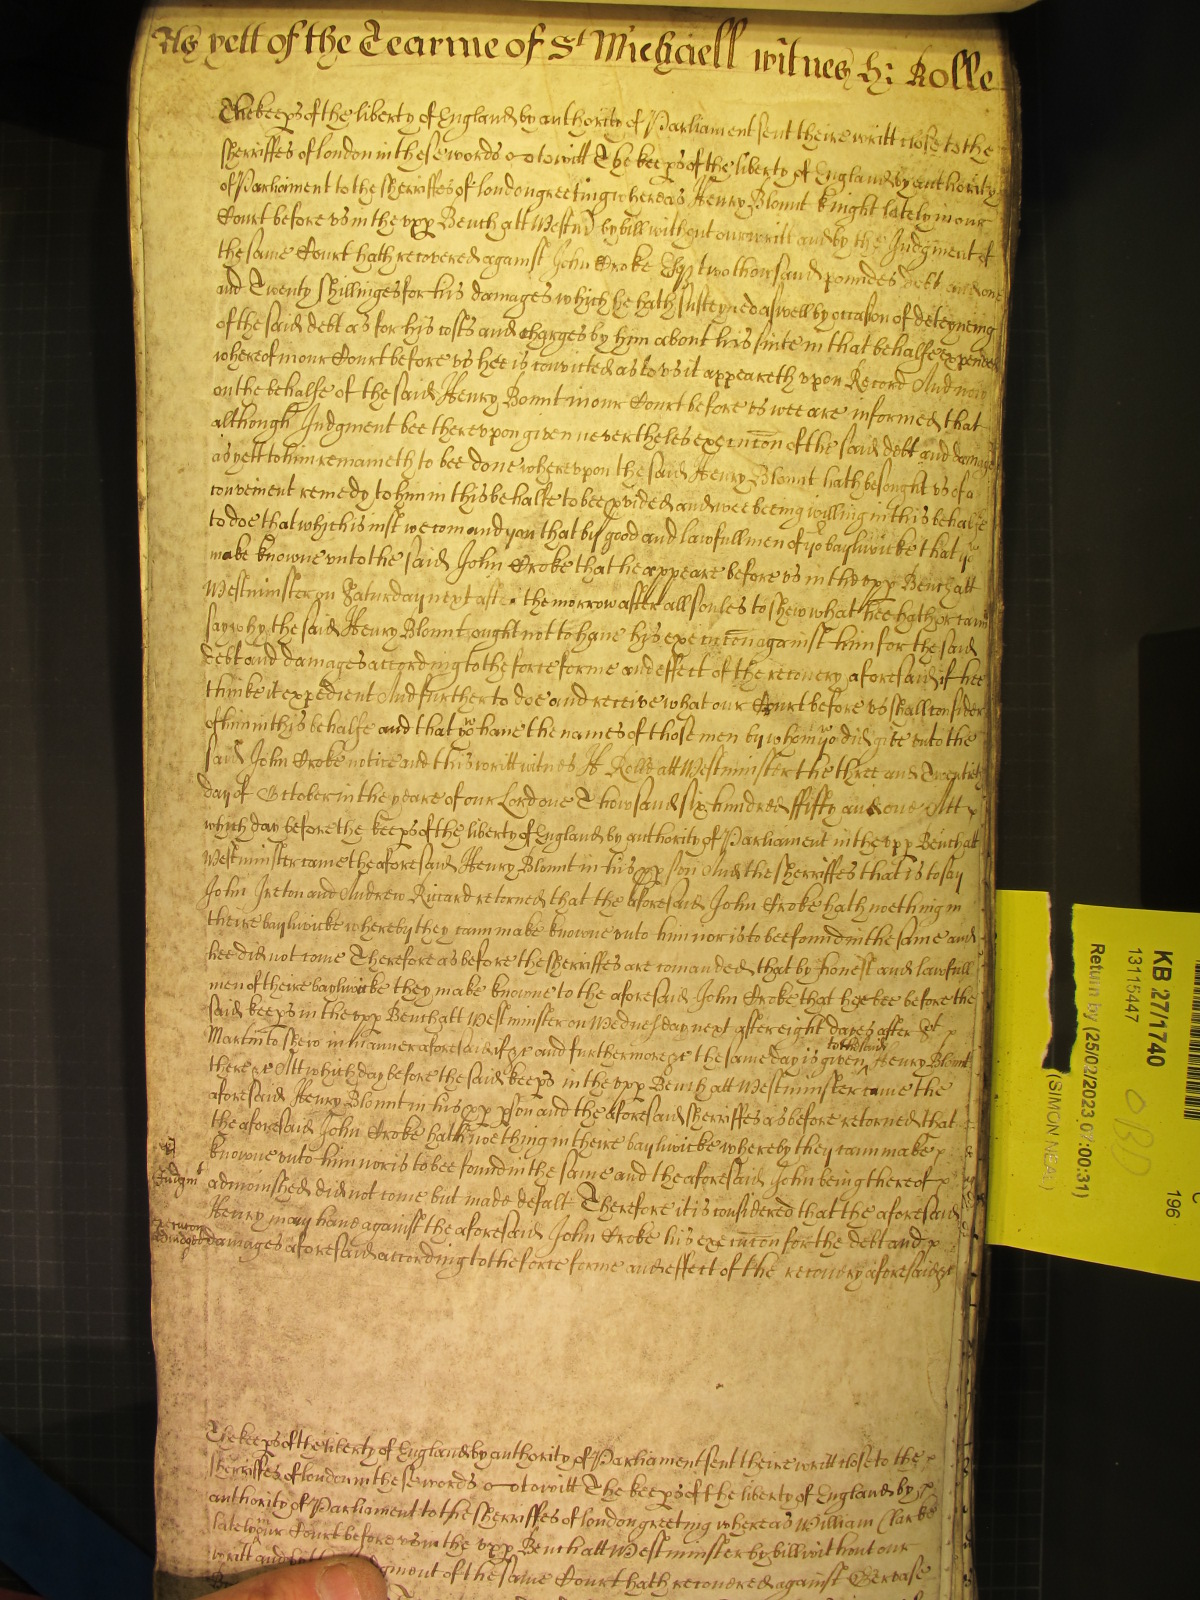 As yett of the Tearme of St Michaell witnes H: Rolle
The keeps of the liberty of England by authority of Parliament sent theire writt close to the
sherriffes of london in these words to witt The keeps of the liberty of England by authority
of Parliament to the sherriffes of london greeting whereas Henry Blount knight lately in our
Court before us in the upp Bench att Westmr by bill without our writt and by the Judgment of
the same Court hath recovered against John Croke Esqr two thousand poundes debt and one
and Twenty shillinges for his damages which he hath susteyned aswell by occasion of deteyneing
of the said debt as for his costs and charges by him about his suite in that behalfe expended
whereof in our Court before us hee is convicted as to us it appeareth upon Record And now
on the behalfe of the said Henry Blount in our Court before us wee are informed that
although Judgment bee thereupon given nevertheles execucon of the said debt and damages
as yett to him remaineth to bee done whereupon the said Henry Blount hath besought us of a
convenient remedy to him in this behalfe to bee pvided and wee beeing willing in this behalfe
to doe that which is iust we comand you that by good and lawfull men of yor bayliwicke that yo
make knowne unto the said John Croke that he appeare before us in the upp Bench att
Westminster on Saturday next after the morrow after all soules to shew what hee hath or cann
say why the said Henry Blount ought not to have his execucon against him for the said
debt and damages according to the force forme and effect of the recovery aforesaid if hee
thinke it expedient And further to doe and receive what our Court before us shall consider
of him in this behalfe and that yo have the names of those men by whom yo did give unto the
said John Croke notice and this writt witnes H Rolle att Westminster the three and Twentith
day of October in the yeare of our Lord one Thowsand six hundred ffifty and one Att
which day before the keeps of the liberty of England by authority of Parliament in the upp Bench att
Westminster came the aforesaid Henry Blount in his pp pson And the sherriffes that is to say
John Ireton and Andrew Ricard retorned that the aforesaid John Croke hath noething in
theire bayliwicke whereby they cann make knowne unto him nor is to bee found in the same and
hee did not come Therefore as before the sherriffes are comanded that by honest and lawfull
men of theire bayliwicke they make knowne to the aforesaid John Croke that hee bee before the
said keeps in the upp Bench att Westminster on Wednesday next after eight dayes after St
Martin to shew in manner aforesaid if &c and furthermore &c the same day is given to the said Henry Blount
there &c Att which day before the said keeps in the upp Bench att Westminster came the
aforesaid Henry Blount in his pp pson and the aforesaid sherriffes as before retorned that
the aforesaid John Croke hath noething in theire bayliwicke whereby they cann make
knowne unto him nor is to bee found in the same and the aforesaid John being thereof
Judgmt
admonished did not come but made defalt Therefore it is considered that the aforesaid
Henry may have against the aforesaid John Croke his execucon for the debt and
execucon
adiudged
damages aforesaid according to the force forme and effect of the recovery aforesaid &c
The keeps of the liberty of England by authority of Parliament sent theire writt close to the
sherriffes of london in these words to witt The keeps of the liberty of England by
authority of Parliament to the sherriffes of london greeting whereas William Clarke
late in our Court before us in the upp Bench att Westminster by bill without our
writt and by the Judgment of the same Court hath recovered against Gervase
KB 27/1740
13115447
Return by (25/02/2023 07:00:31)
(SIMON NEAL)
196